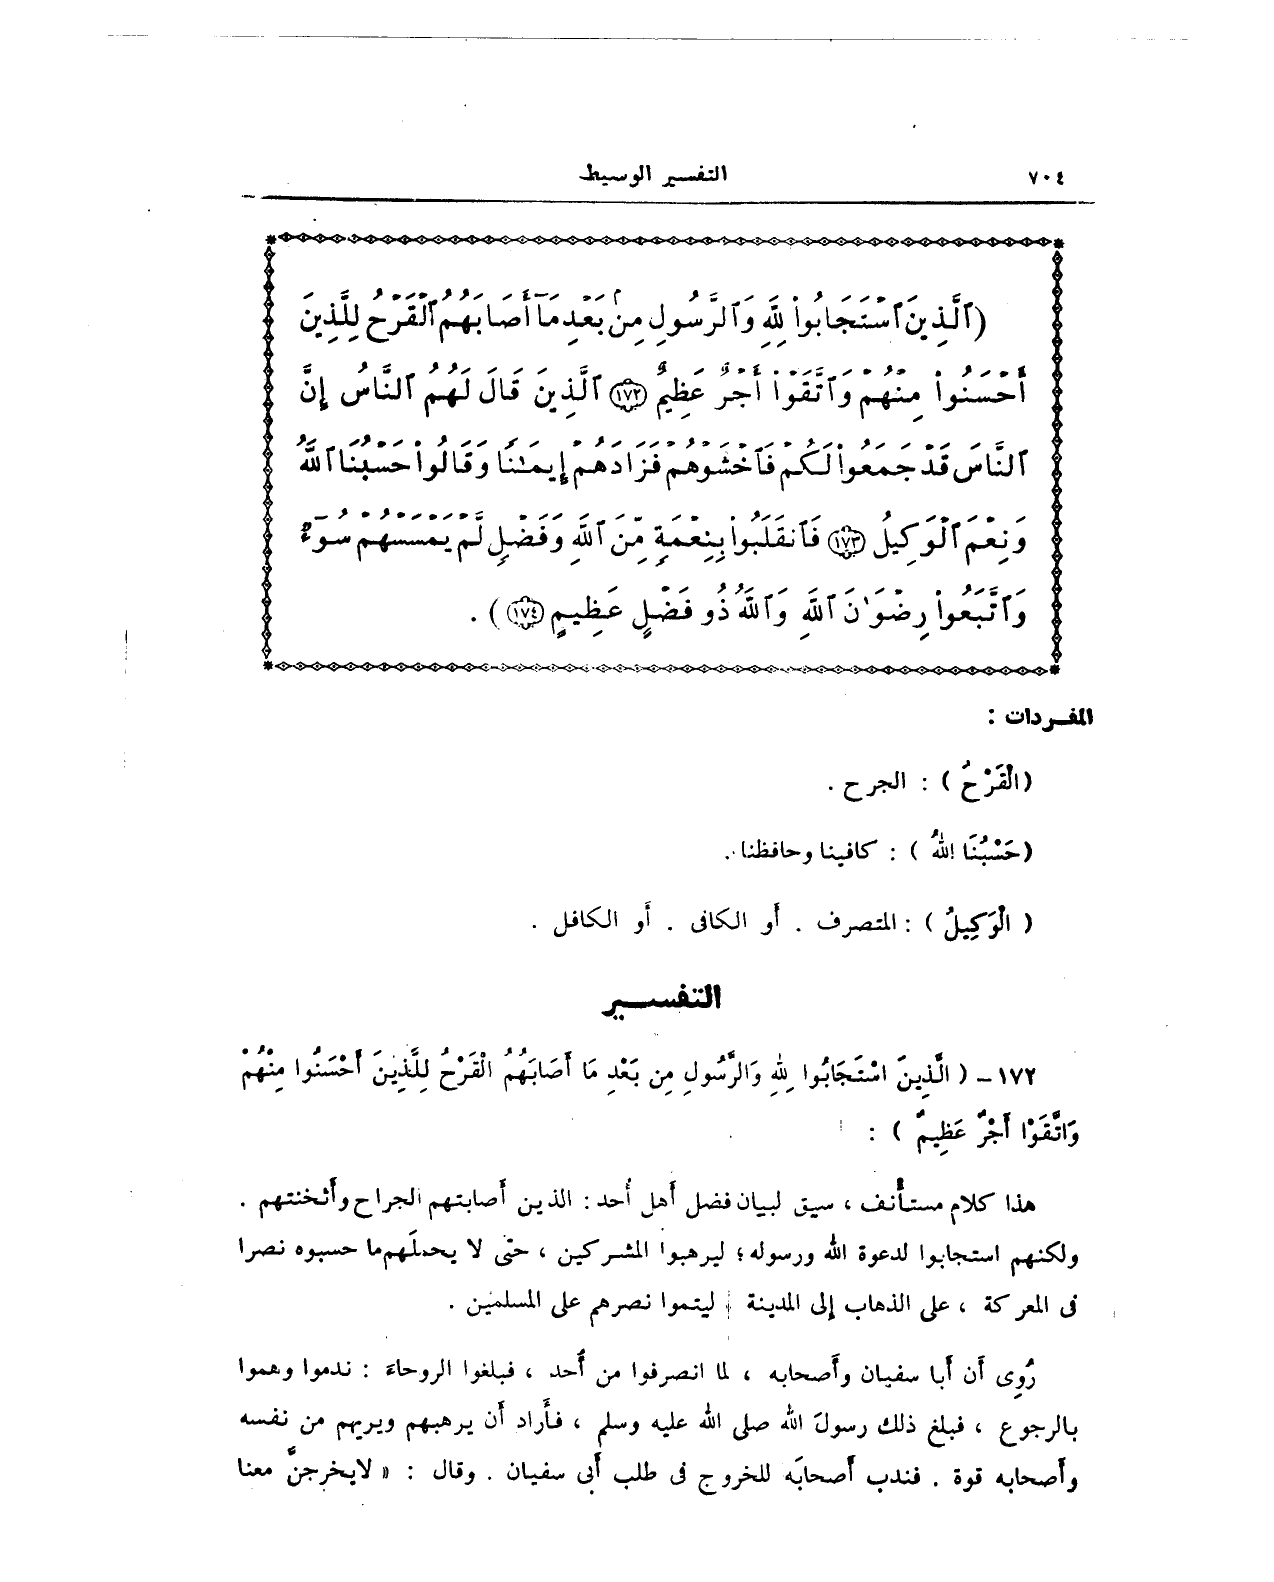 ٧٠٤
التفسير الوسيط
(ٱلَّذِينَ ٱسْتَجَابُوا۟ لِلَّهِ وَٱلرَّسُولِ مِنۢ بَعْدِ مَآ أَصَابَهُمُ ٱلْقَرْحُ لِلَّذِينَ
أَحْسَنُوا۟ مِنْهُمْ وَٱتَّقَوْا۟ أَجْرٌ عَظِيمٌ ١٧٢ ٱلَّذِينَ قَالَ لَهُمُ ٱلنَّاسُ إِنَّ
ٱلنَّاسَ قَدْ جَمَعُوا۟ لَكُمْ فَٱخْشَوْهُمْ فَزَادَهُمْ إِيمَٰنًا وَقَالُوا۟ حَسْبُنَا ٱللَّهُ
وَنِعْمَ ٱلْوَكِيلُ ١٧٣ فَٱنقَلَبُوا۟ بِنِعْمَةٍ مِّنَ ٱللَّهِ وَفَضْلٍ لَّمْ يَمْسَسْهُمْ سُوٓءٌ
وَٱتَّبَعُوا۟ رِضْوَٰنَ ٱللَّهِ وَٱللَّهُ ذُو فَضْلٍ عَظِيمٍ ١٧٤) .
المفردات :
(الْقَرْحُ ) : الجرح .
(حَسْبُنَا اللهُ ) : كافينا وحافظنا .
( الْوَكِيلُ ) : المتصرف . أو الكافى . أو الكافل .
التفسير
١٧٢ - ( الَّذِينَ اسْتَجَابُوا لِلهِ وَالرَّسُولِ مِن بَعْدِ مَا أَصَابَهُمُ الْقَرْحُ لِلَّذِينَ أَحْسَنُوا مِنْهُمْ
وَاتَّقَوْا أَجْرٌ عَظِيمٌ ) :
هذا كلام مستأنف ، سيق لبيان فضل أهل أُحد : الذين أصابتهم الجراح وأثخنتهم .
ولكنهم استجابوا لدعوة الله ورسوله ؛ ليرهبوا المشركين ، حتَّى لا يحملَهم ما حسبوه نصرا
فى المعركة ، على الذهاب إلى المدينة ليتموا نصرهم على المسلمين .
رُوِى أن أبا سفيان وأصحابه ، لما انصرفوا من أُحد ، فبلغوا الروحاءَ : ندموا وهموا
بالرجوع ، فبلغ ذلك رسولَ الله صلى الله عليه وسلم ، فأراد أن يرهبهم ويريهم من نفسه
وأصحابه قوة . فندب أصحابَه للخروج فى طلب أبى سفيان . وقال : « لايخرجنَّ معنا